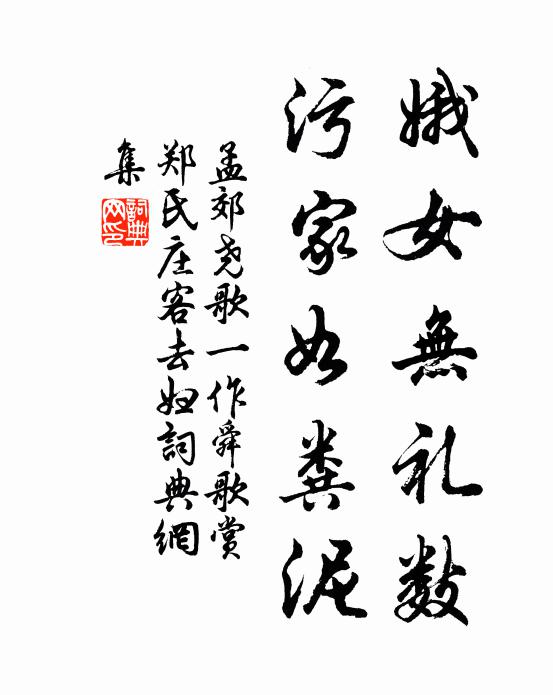 娥女無礼数
污家如糞泥
孟郊尧歌一作舜歌赏
郑氏庄客去妞詞典網
集
詞典网印